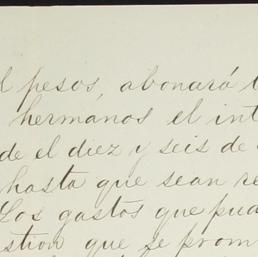 l pesos, abonará
hermanos el int
de el diez y seis de
hasta que sean re
Los gastos que pue
stion que se prom